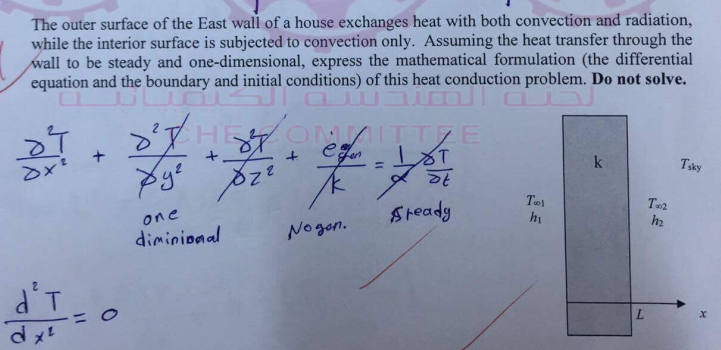 The outer surface of the East wall of a house exchanges heat with both convection and radiation,
while the interior surface is subjected to convection only. Assuming the heat transfer through the
wall to be steady and one-dimensional, express the mathematical formulation (the differential
equation and the boundary and initial conditions) of this heat conduction problem. Do not solve.
CHE COMMITTEE
∂²T/∂x² + ∂²T/∂y² + ∂²T/∂z² + ėgen/k = 1/α ∂T/∂t
one
diminional
No gen.
Steady
k
Tsky
T∞1
h1
T∞2
h2
d²T/dx² = 0
L
x